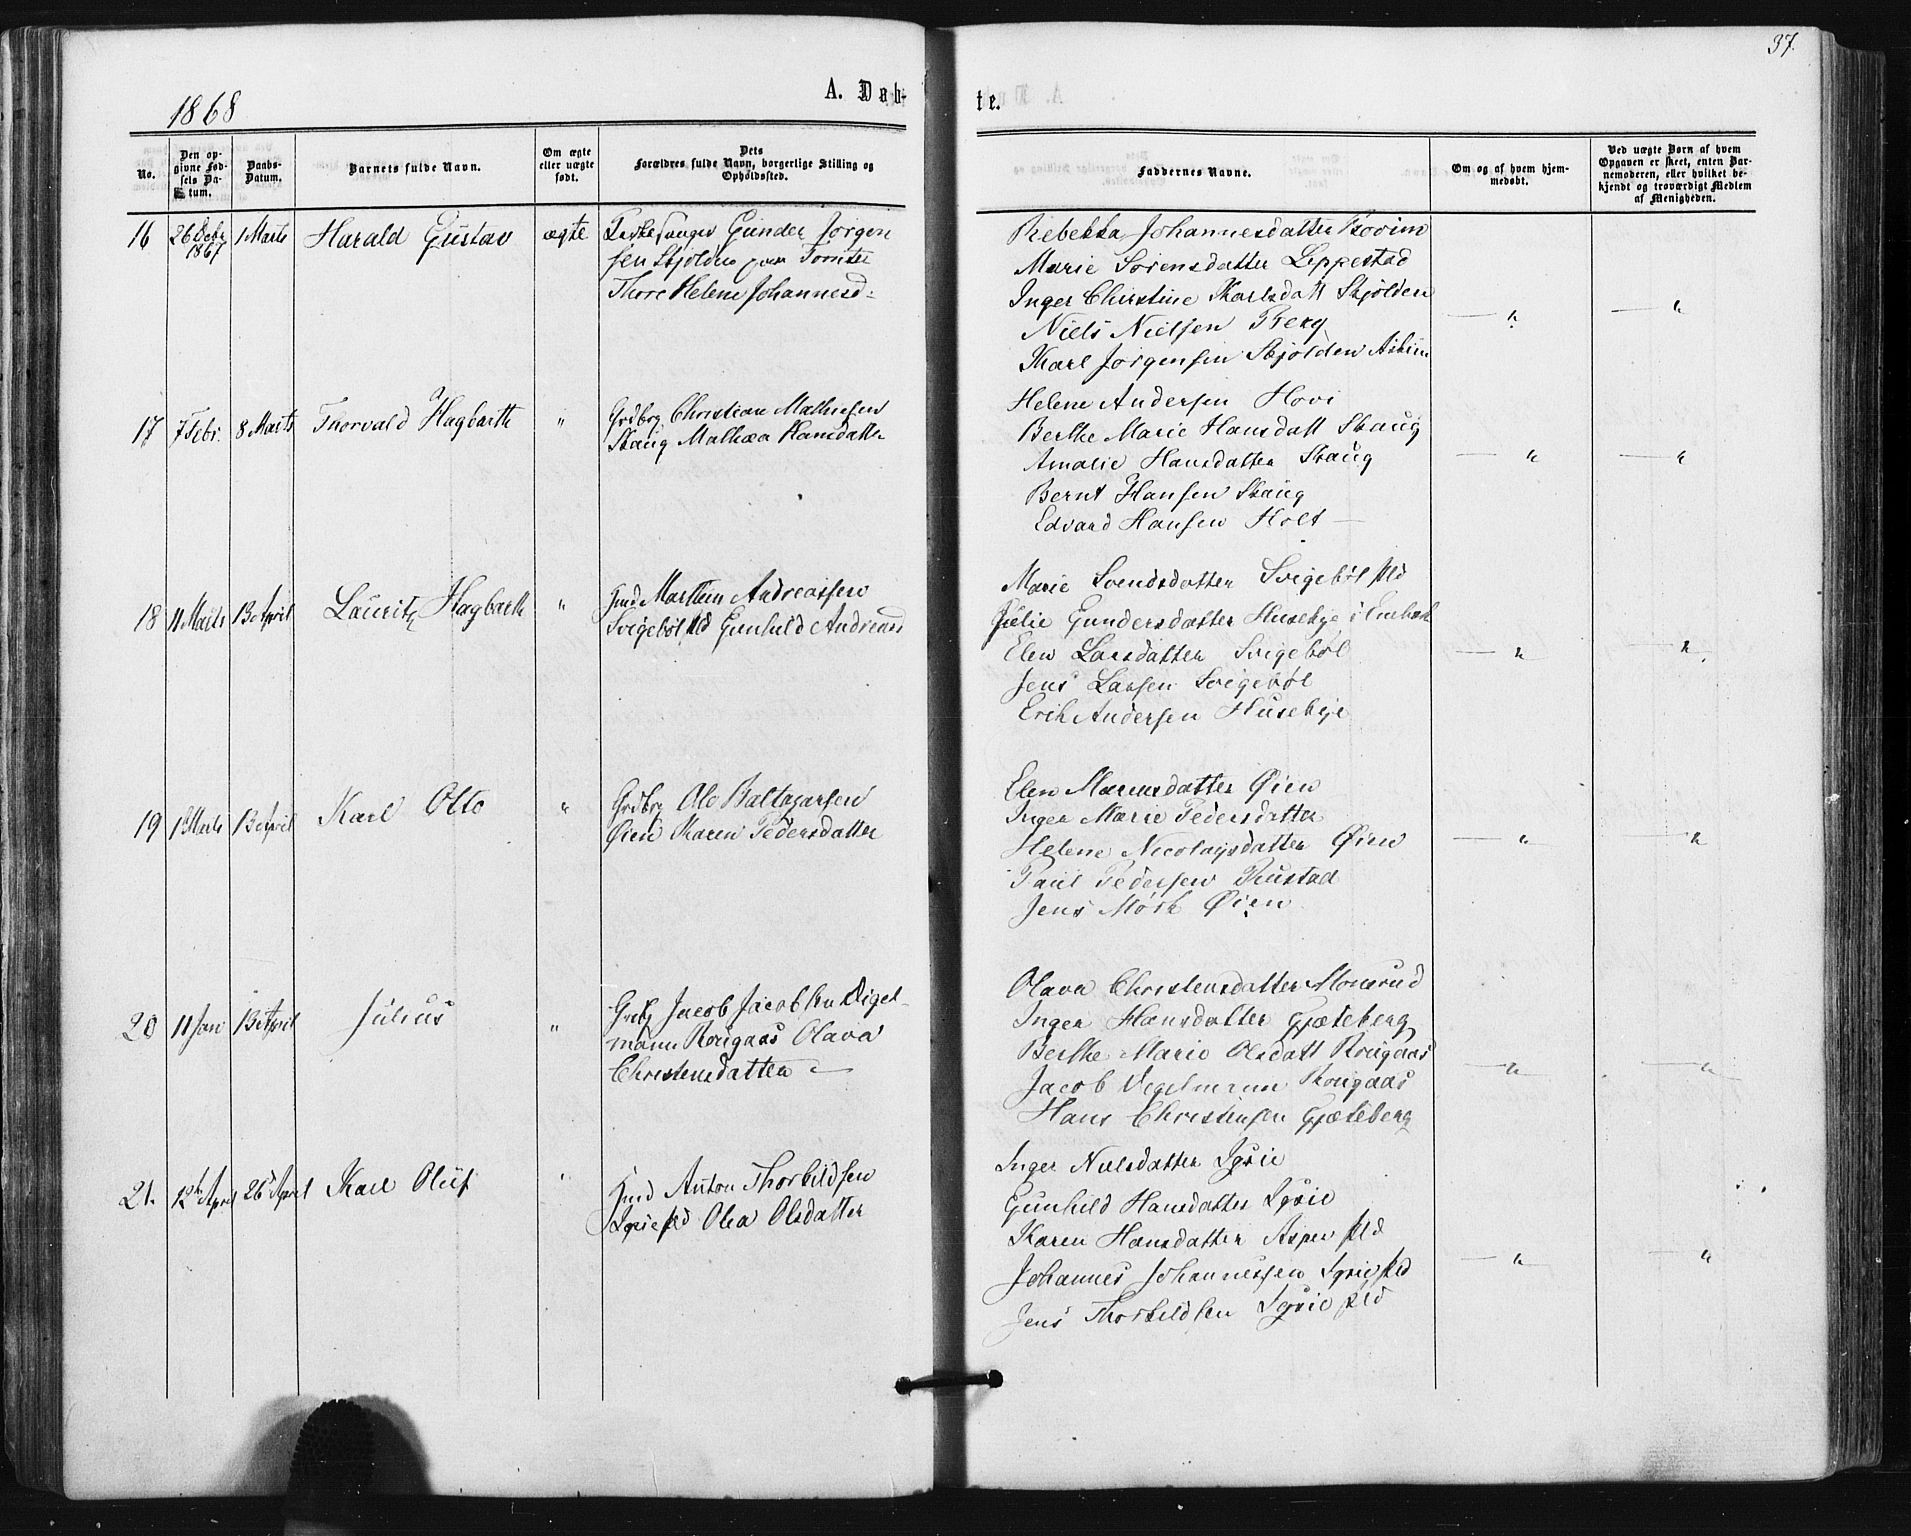 37.
1868
A. Døb-
te.
No.
Den op-
givne Fød-
sels Da-
tum.
Daabs-
Datum.
Barnets fulde Navn.
Om ægte
eller uægte
født.
Dets
Forældres fulde Navn, borgerlige Stilling og
Opholdssted.
Faddernes Navne.
Om og af hvem hjem-
medøbt.
Ved uægte Børn af hvem
Opgaven er skeet, enten Bar-
nemoderen, eller hvilket be-
kjendt og troværdigt Medlem
af Menigheden.
16
26
1867
1 Marts
Harald Gustav
ægte
Kirkesanger Gunder Jørgen
sen Skjolden
Thore Helene Johannesd:
Rebekka Johannesdatter
Marie Sørensdatter Leppestad
Inger Christine Karlsdatt Skjolden
Niels Nielsen Berg
Karl Jørgensen Skjolden Askim
— " — "
17
7 Febr.
8 Marts
Thorvald Hagbarth
"
Grdbrg Christian Mathiesen
Skaug Mathea Hansdatter
Helene Andersen Hovi
Berthe Marie Hansdatt Skaug
Amalie Hansdatter Skaug
Bernt Hansen Skaug
Edvard Hansen Holt —
— " — "
18
11 Marts
13 April
Lauritz Hagbarth
"
Hmd Marthin Andreassen
Svigebøl Eld Gunhild Andreasd
Marie Svendsdatter Svigebøl Eld
Julie Gundersdatter Husebye i
Elen Larsdatter Svigebøl
Jens Larsen Svigebøl
Erik Andersen Husebye
— " — "
19
1 Marts
13 April
Karl Otto
"
Grdbrg Ole Baltazarsen
Øien Karen Pedersdatter
Elen Mariusdatter Øien
Inger Marie Pedersdatter
Helene Nicolaysdatter Øien
Paul Pedersen Rustad
Jens Mørk Øien
— " — "
20
11 Jan
13 April
Julius
"
Jacob Jacobsen Vigel-
mann Rougaas Olava
Christensdatter —
Olava Christensdatter Monsrud
Inger Hansdatter Gjæteberg
Berthe Marie Olsdatt Rougaas
Jacob Vegelmann Rougaas
Hans Christensen Gjæteberg
— " — "
21.
12te April
26d April
Karl Oluf
"
Hmd Anton Thorkildsen
Olea Olsdatter
Inger Nielsdatter
Gunhild Hansdatter
Karen Hansdatter Aspen Eld
Johannes Johannessen
Jens Thorkildsen
— " — "